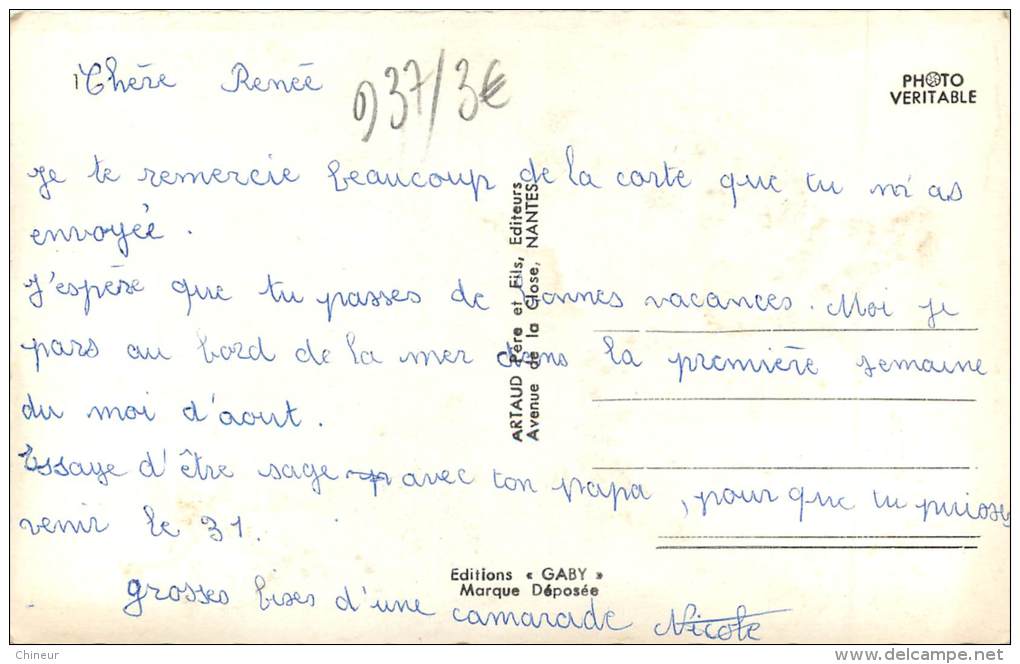 Chère Renée
937/3€
PHOTO
VERITABLE
Je te remercie beaucoup de la carte que tu m'as
envoyée.
J'espère que tu passes de bonnes vacances. Moi je
pars au bord de la mer dans la première semaine
du moi d'aout.
Essaye d'être sage avec ton papa, pour que tu puisses
venir le 31.
grosses bises d'une camarade Nicole
ARTAUD Père et Fils, Editeurs
Avenue de la Close, NANTES
Editions « GABY »
Marque Déposée
Chineur
www.delcampe.net